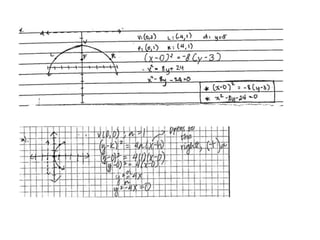 V:(0,3) L:(-4,1) d: y=5
F:(0,1) R:(4,1)
(x-0)² = -8(y-3)
x² = -8y+24
x² - 8y - 24=0
* (x-0)² = -8(y-3)
* x² - 8y - 24 = 0
V(0,0) ; a=1
opens to the right, (+) a
(y-k)² = 4a(x-h)
(y-0)² = 4(1)(x-0)
(y-0)² = 4(x-0)
y² = 4x
y² - 4x = 0